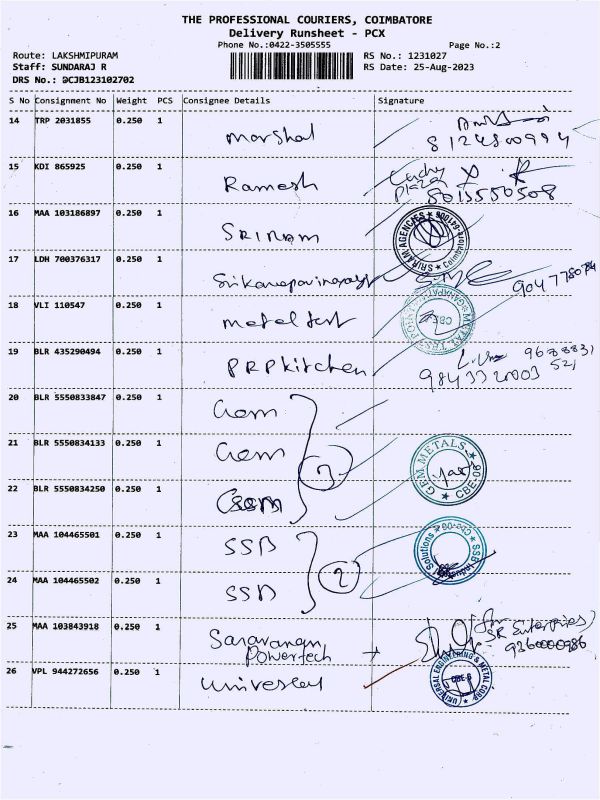 THE PROFESSIONAL COURIERS, COIMBATORE
Delivery Runsheet - PCX
Phone No.:0422-3505555 Page No.:2
Route: LAKSHMIPURAM RS No.: 1231027
Staff: SUNDARAJ R RS Date: 25-Aug-2023
DRS No.: DCJB123102702
S No Consignment No Weight PCS Consignee Details Signature
14 TRP 2031855 0.250 1 Marshal
8124800994
15 KDI 865925 0.250 1 Ramesh
Plaza 8015550508
16 MAA 103186897 0.250 1 SRIRAM
SRIRAM AGENCIES Coimbatore-641006
17 LDH 700376317 0.250 1
18 VLI 110547 0.250 1 Metal test
METAL TEST POINT GANAPATHY CBE-6
19 BLR 435290494 0.250 1 PRP kitchen
20 BLR 5550833847 0.250 1 Gem
21 BLR 5550834133 0.250 1 Gem 3
GEM METALS CBE-06
22 BLR 5550834250 0.250 1 Gem
23 MAA 104465501 0.250 1 SSB
SSB Industrial Solutions CBE-06
24 MAA 104465502 0.250 1 SSB 2
25 MAA 103843918 0.250 1 Saravanan
Powertech
for SK Enterprises
9360000986
26 VPL 944272656 0.250 1 Universal
UNIVERSAL ENGINEERING & METAL CORP. CBE-6